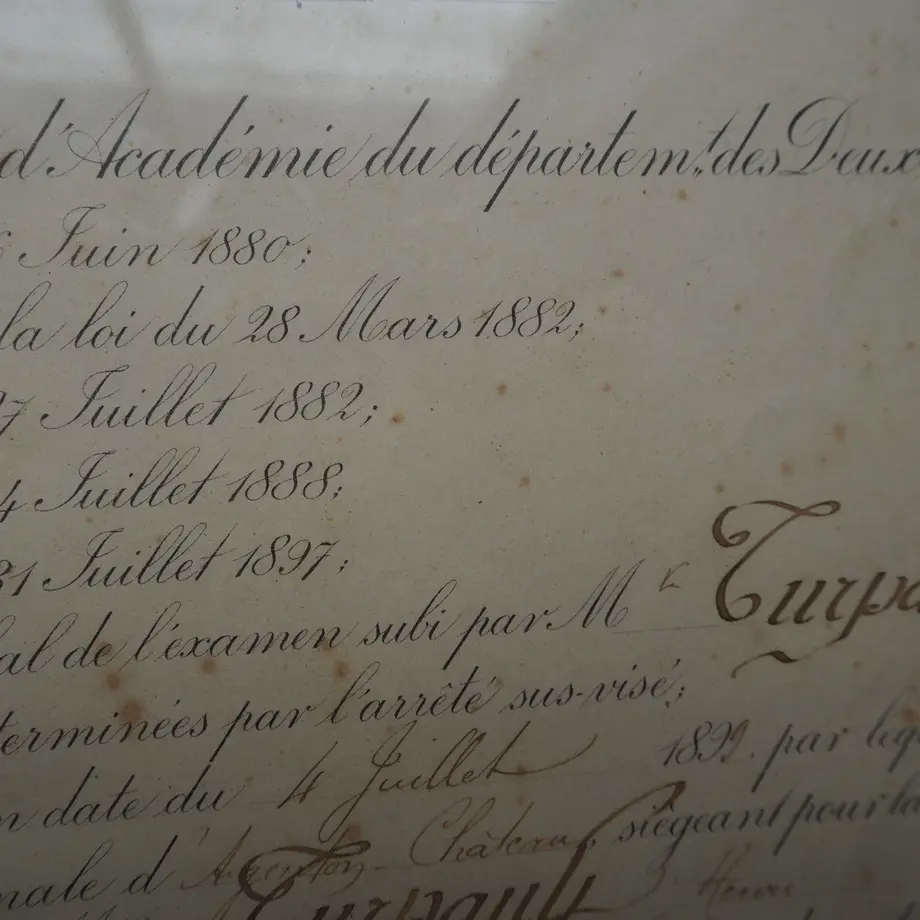 d'Académie du départem.t des Deux
6 Juin 1880;
la loi du 28 Mars 1882;
27 Juillet 1882;
4 Juillet 1888;
31 Juillet 1897;
al de l'examen subi par Mr Turpa
terminées par l'arrêté sus-visé;
n date du 4 Juillet 1899. par leq
nale d'Argenton-Château, siégeant pour la
Turpault Henri